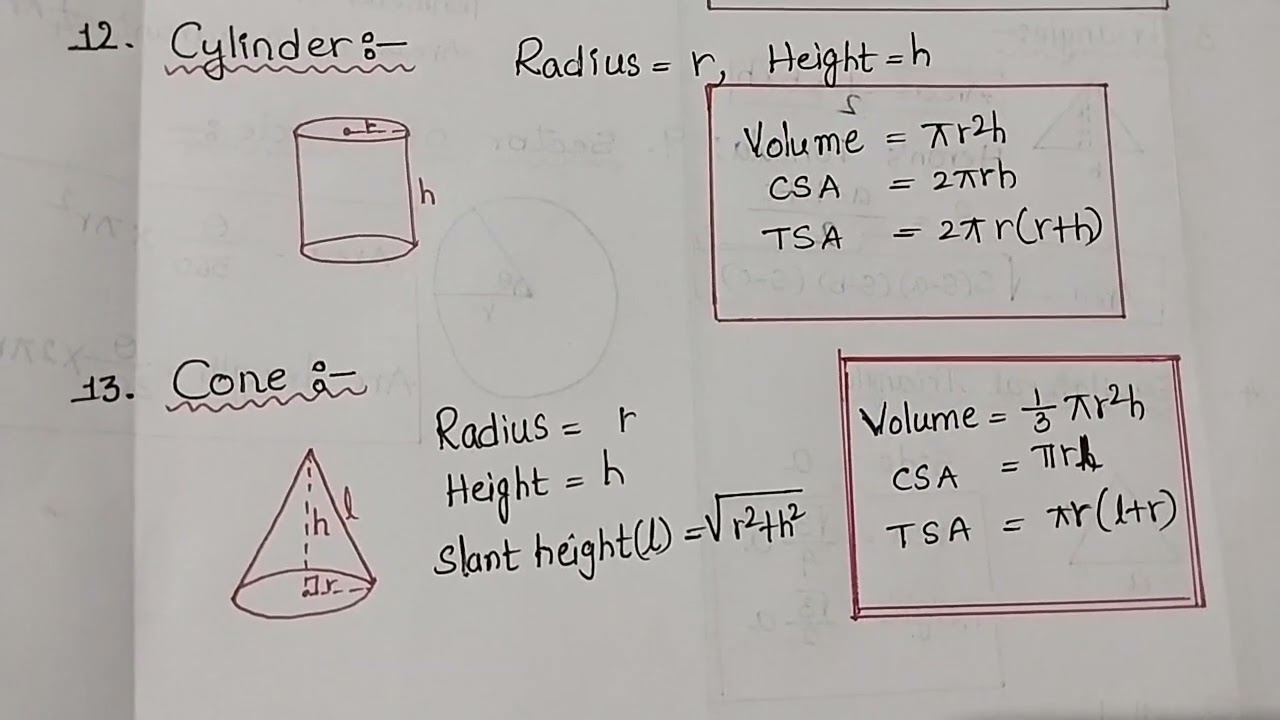 12. Cylinder :-
Radius = r, Height = h
r
h
Volume = πr²h
CSA = 2πrh
TSA = 2πr(r+h)
13. Cone :-
Radius = r
Height = h
Slant height(l) = √r²+h²
l
h
r
Volume = 1/3 πr²h
CSA = πrl
TSA = πr(l+r)